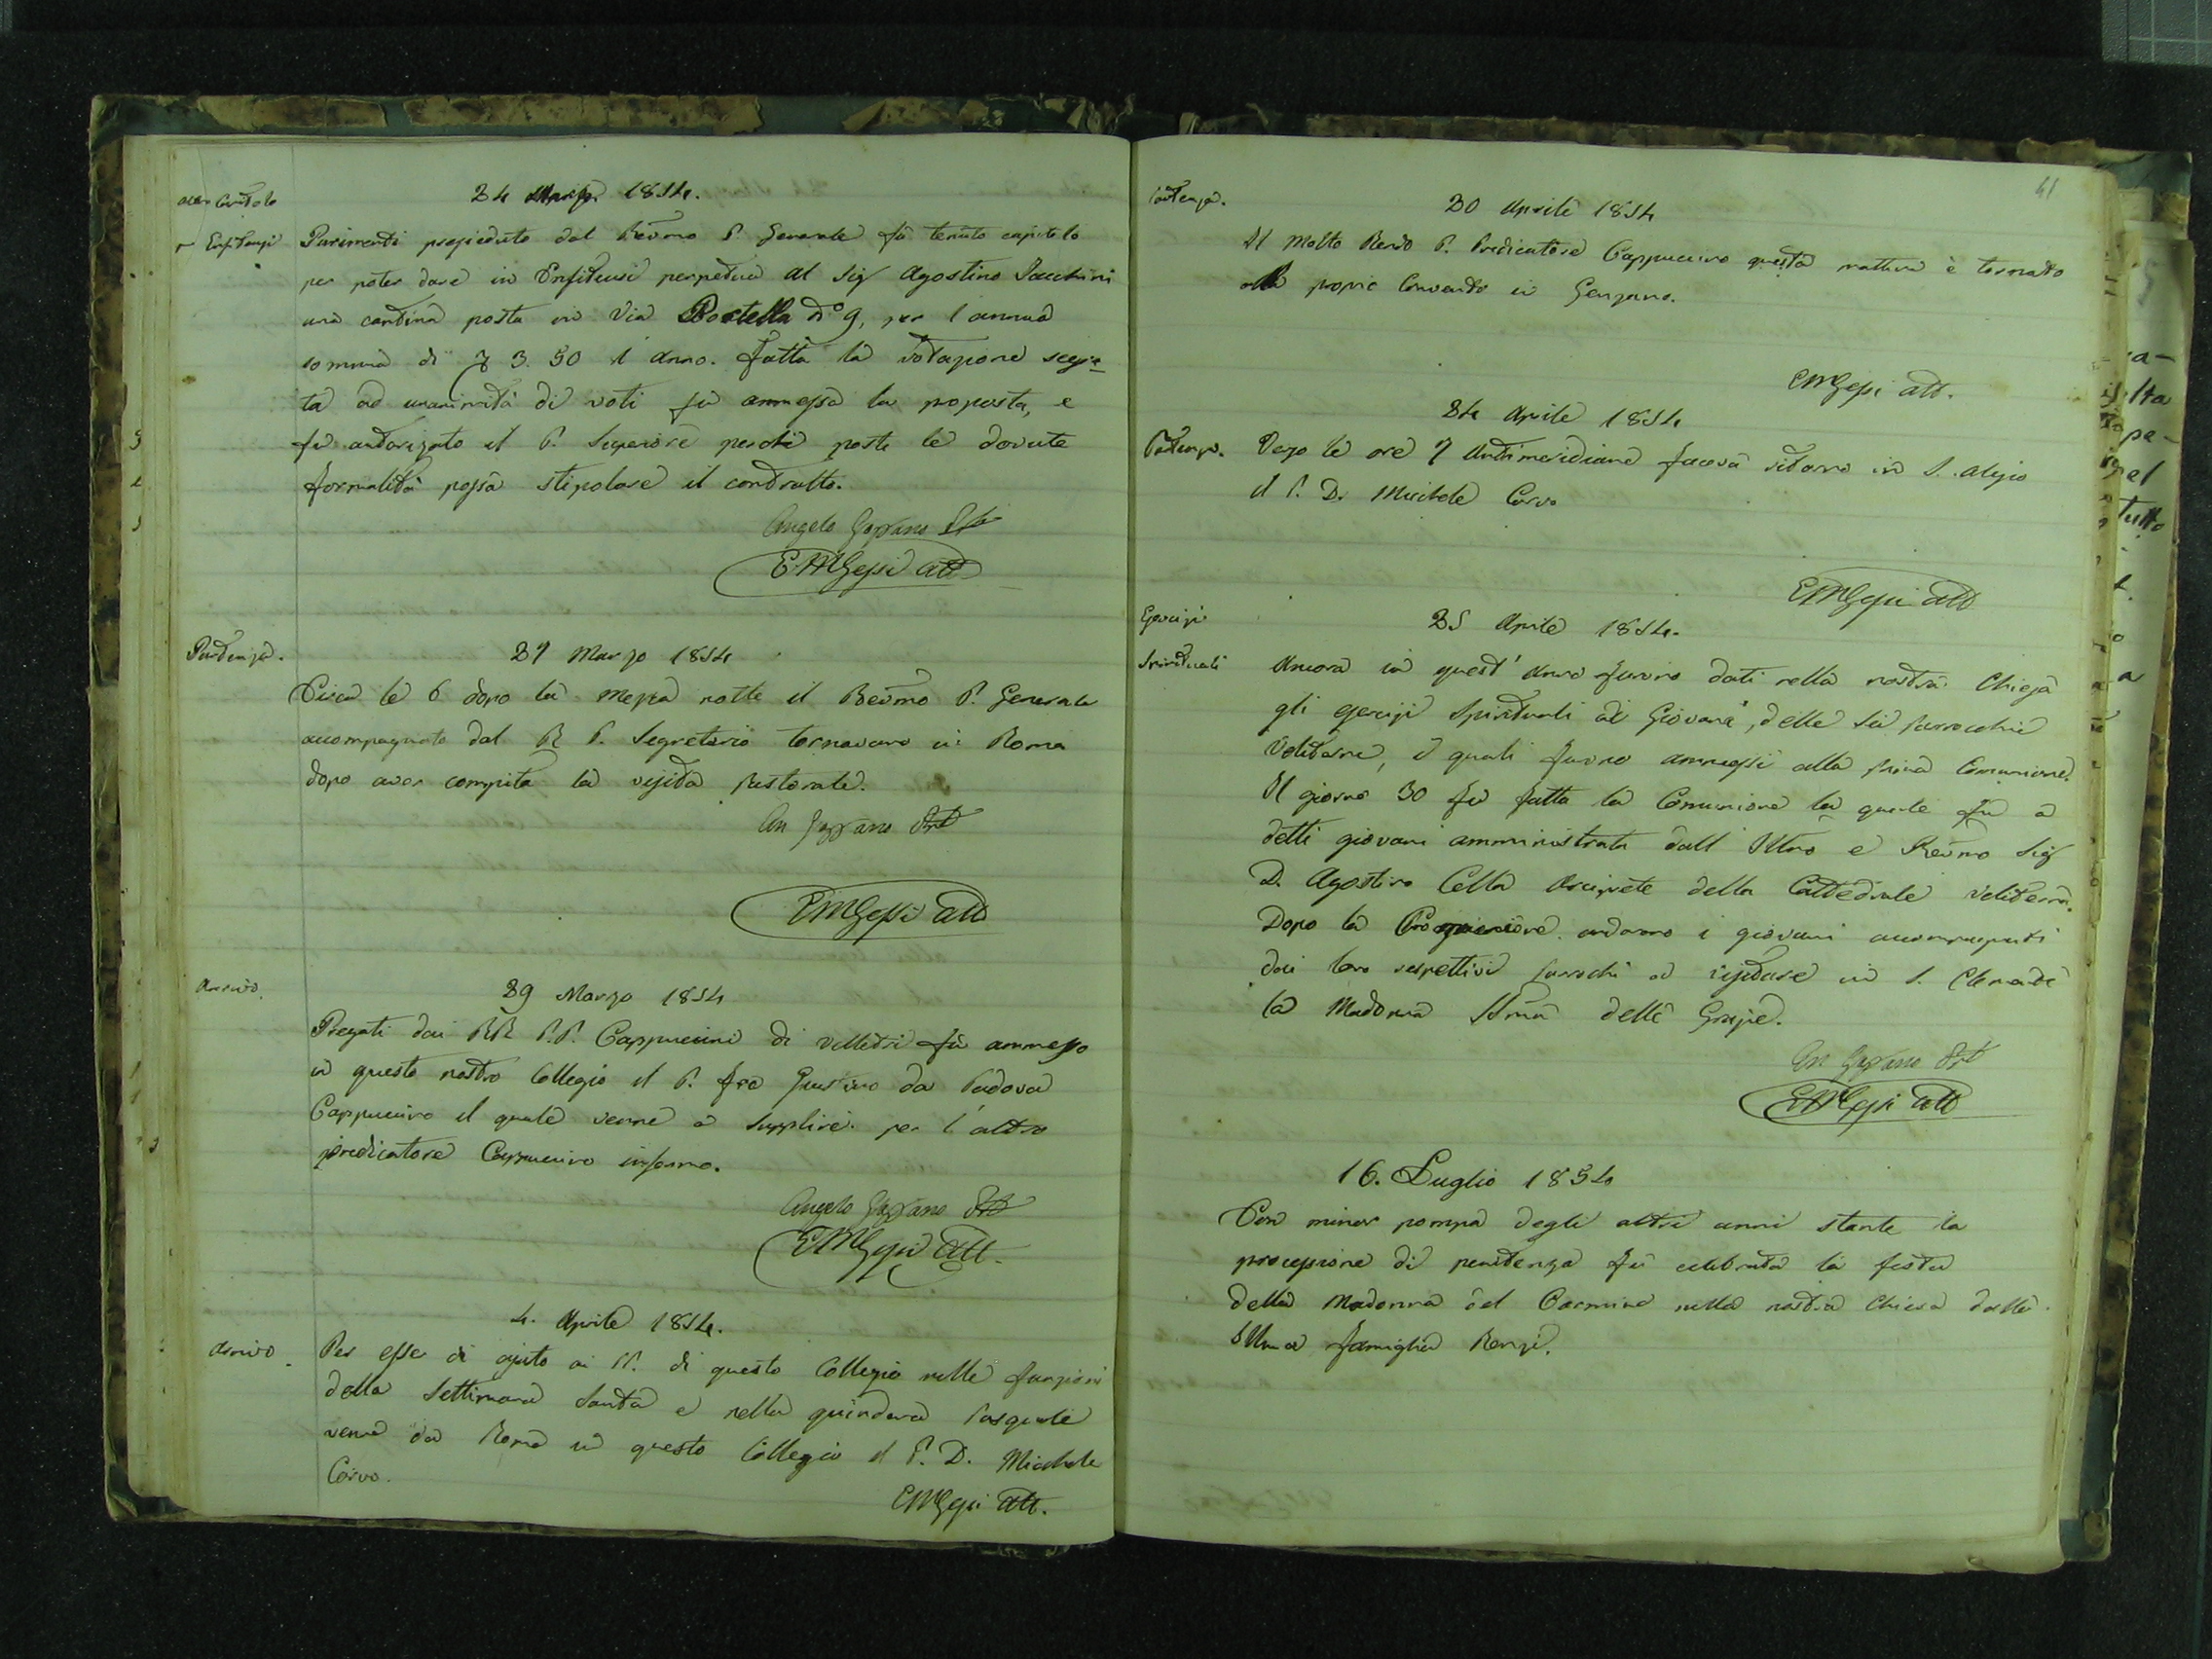 24 Marzo 1854.
Enfiteusi
Parimenti presieduto dal Revmo P. Generale fù tenuto capitolo
per poter dare in Enfiteusi perpetua al Sig Agostino Jacchini
una cantina posta in Via Portella n° 9, per l annua
somma di 3. 50 l anno. Fatta la votazione segre-
ta ad unanimità di voti fù ammessa la proposta, e
fù autorizato il P. Superiore perchè poste le dovute
formalità possa stipolare il contratto.
Angelo Gazzano
EMGessi att
Partenza.
27 Marzo 1854
Circa le 6 dopo la mezza notte il Revmo P. Generale
accompagnato dal R P. Segretario tornavano in Roma
dopo aver compita la visita pastorale.
An Gazzano
EMGessi att
Arrivo.
29 Marzo 1854
Pregati dai RR P.P. Cappuccini di Velletri fù ammesso
in questo nostro Collegio il P. Fra Giustino da Padova
Cappuccino il quale venne a supplire per l'altro
predicatore Cappuccino infermo.
Angelo Gazzano
EMGessi att.
4. Aprile 1854.
Arrivo
Per esser di ajuto ai PP. di questo Collegio nelle funzioni
della Settimana Santa e nella quindena Pasquale
venne da Roma in questo Collegio il P. D. Michele
Corvo.
EMGessi att.
41
Partenza.
20 Aprile 1854
Il Molto Rendo P. Predicatore Cappuccino questa mattina è tornato
al proprio Convento in Genzano.
EMGessi att.
24 Aprile 1854
Partenza.
Verso le ore 7 Antimeridiane faceva ritorno in S. Alesio
il P. D. Michele Corvo
EMGessi att
Esercizi
Spirituali
25 Aprile 1854.
Ancora in quest' anno furono dati nella nostra Chiesa
gli esercizi Spirituali ai Giovani, delle sei parrocchie
Veliterne, i quali furono ammessi alla prima Comunione.
Il giorno 30 fù fatta la Comunione la quale fù a
detti giovani amministrata dall' Illmo e Revmo Sig
D. Agostino Cella Arciprete della Cattedrale Veliterna.
Dopo la Processione andarono i giovani accompagnati
dai loro respettivi parrochi a visitare in S. Clemente
la Madonna SSma delle Grazie.
An Gazzano
EMGessi att
16. Luglio 1854
Con minor pompa degli altri anni stante la
processione di penitenza fù celebrata la festa
della Madonna del Carmine nella nostra Chiesa dalla
Illma famiglia Renzi.